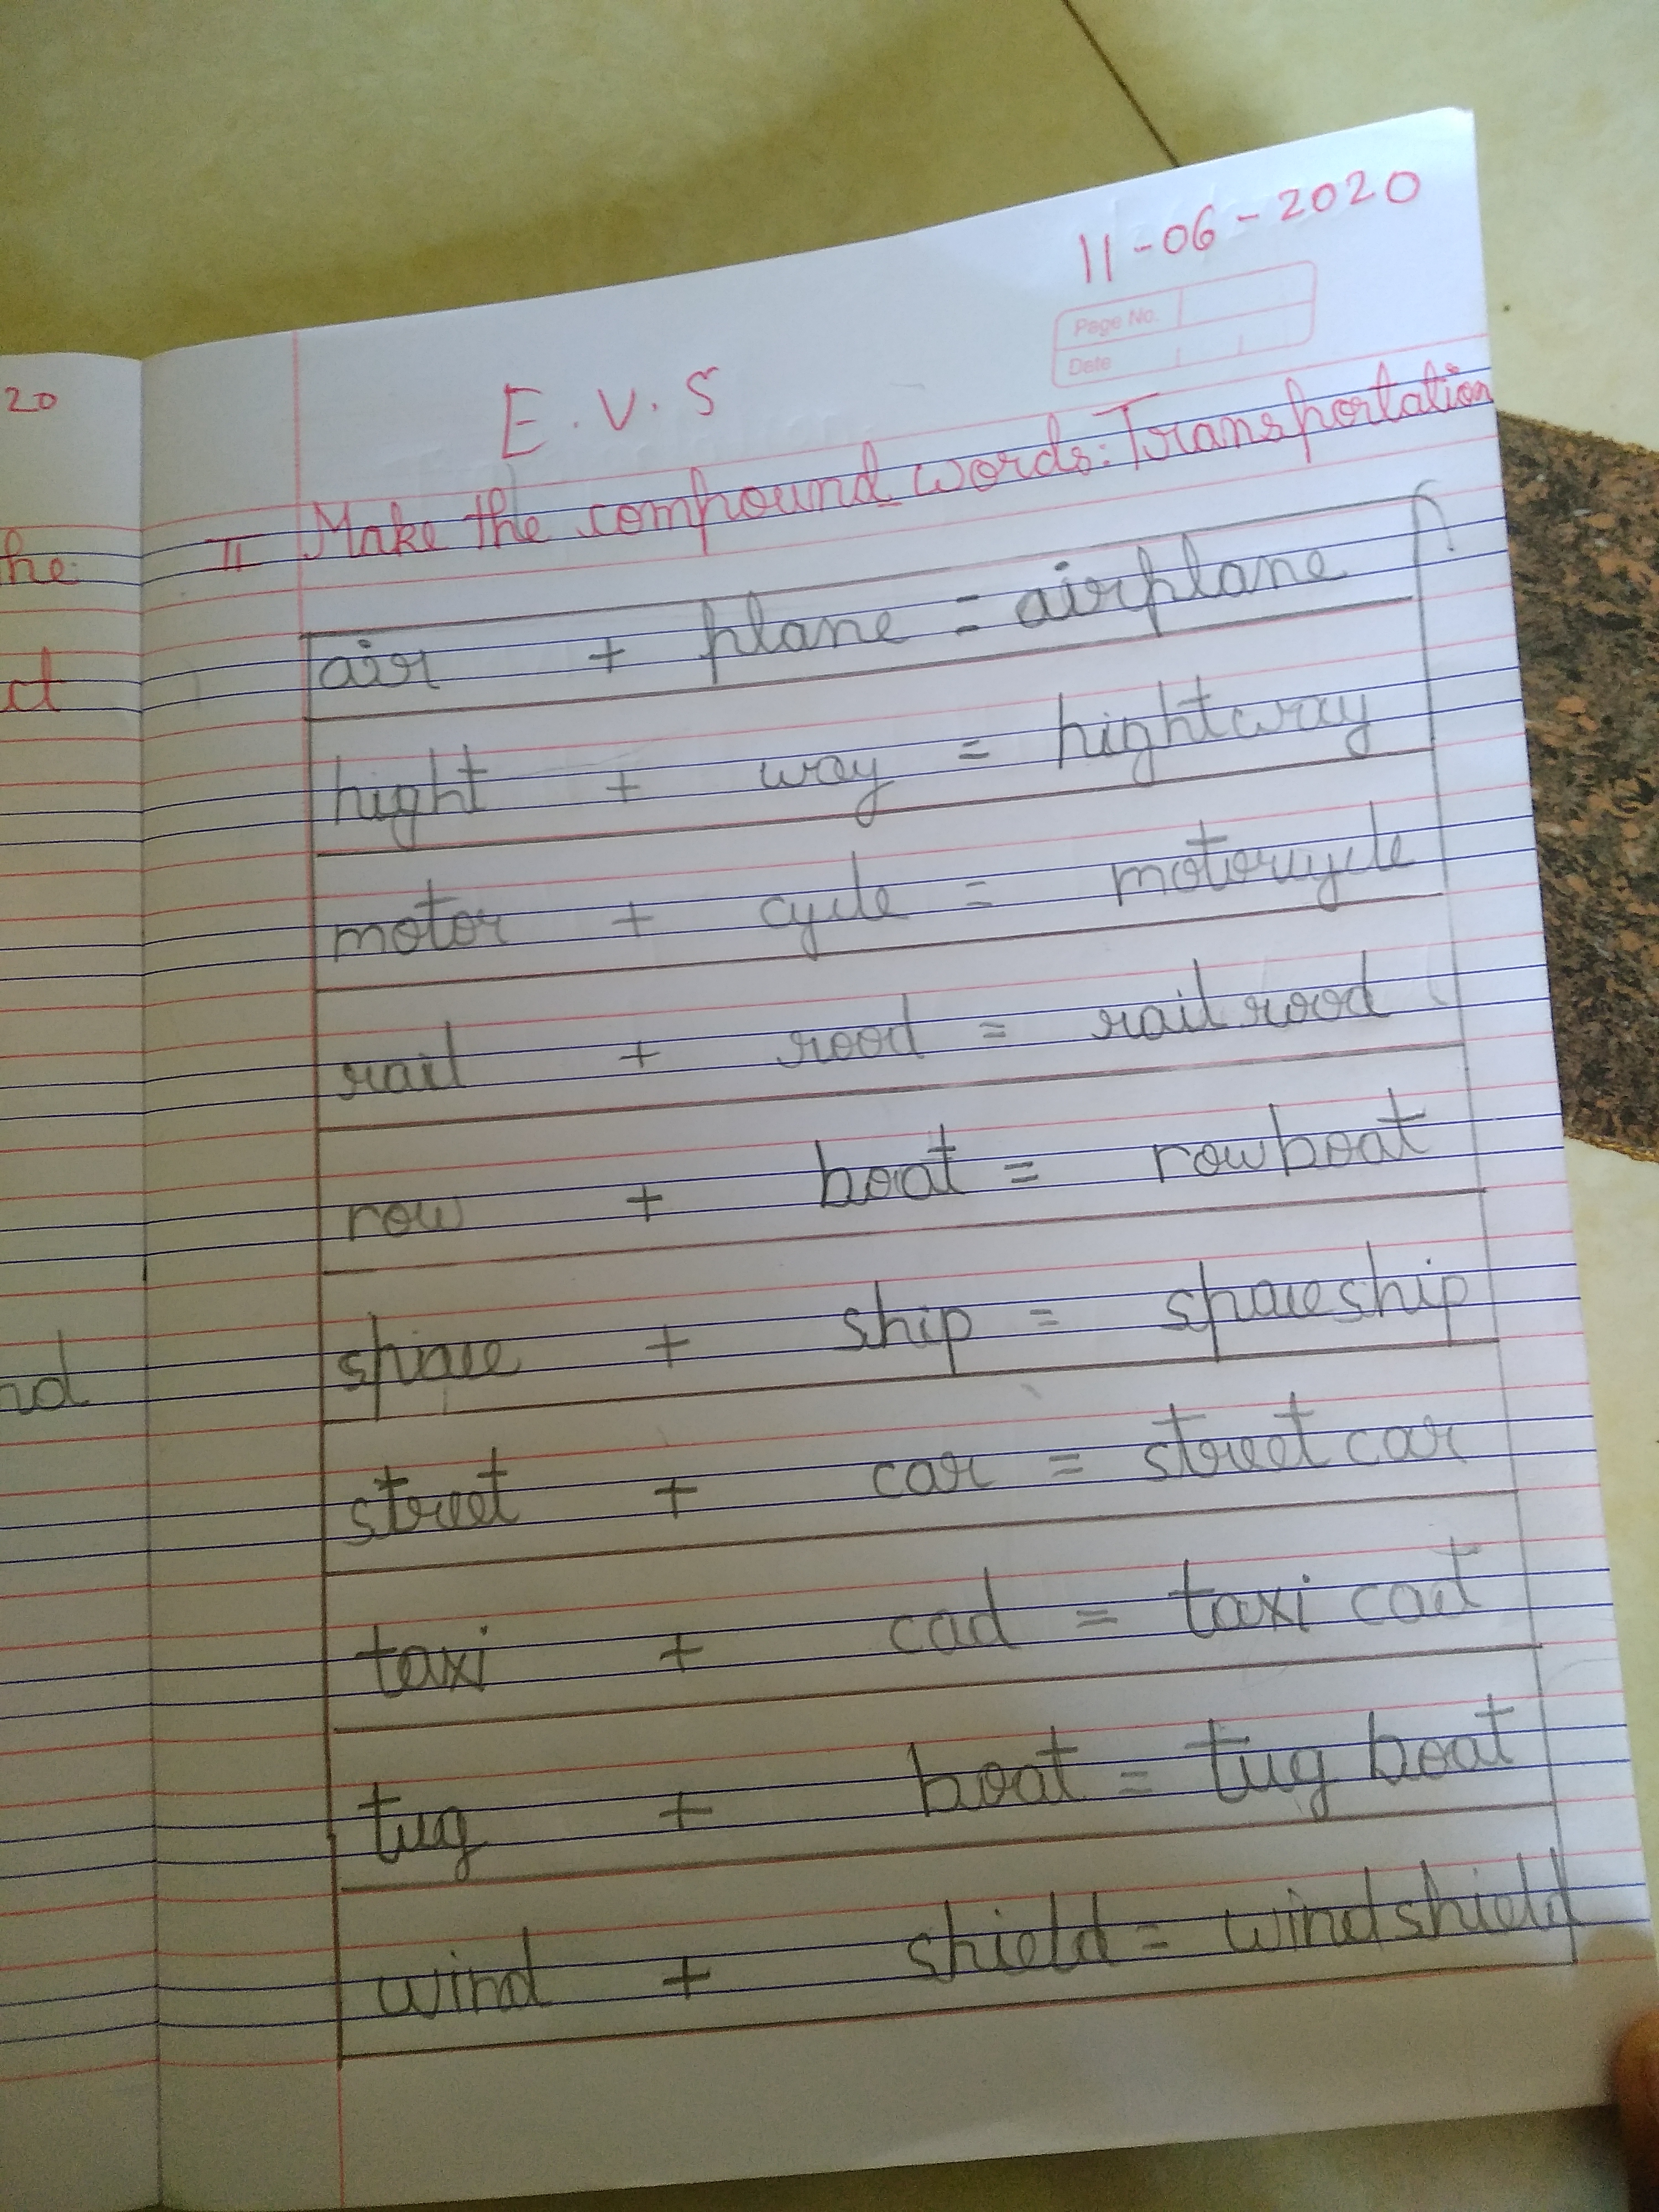 11-06-2020
Page No.
Date
E.V.S
II Make the compound words: Transportation
air + plane = airplane
hight + way = hightway
motor + cycle = motorcycle
rail + rood = rail rood
row + boat = rowboat
space + ship = spaceship
street + car = street car
taxi + cad = taxi cad
tug + boat = tug boat
wind + shield = windshield
20
he
ct
nd